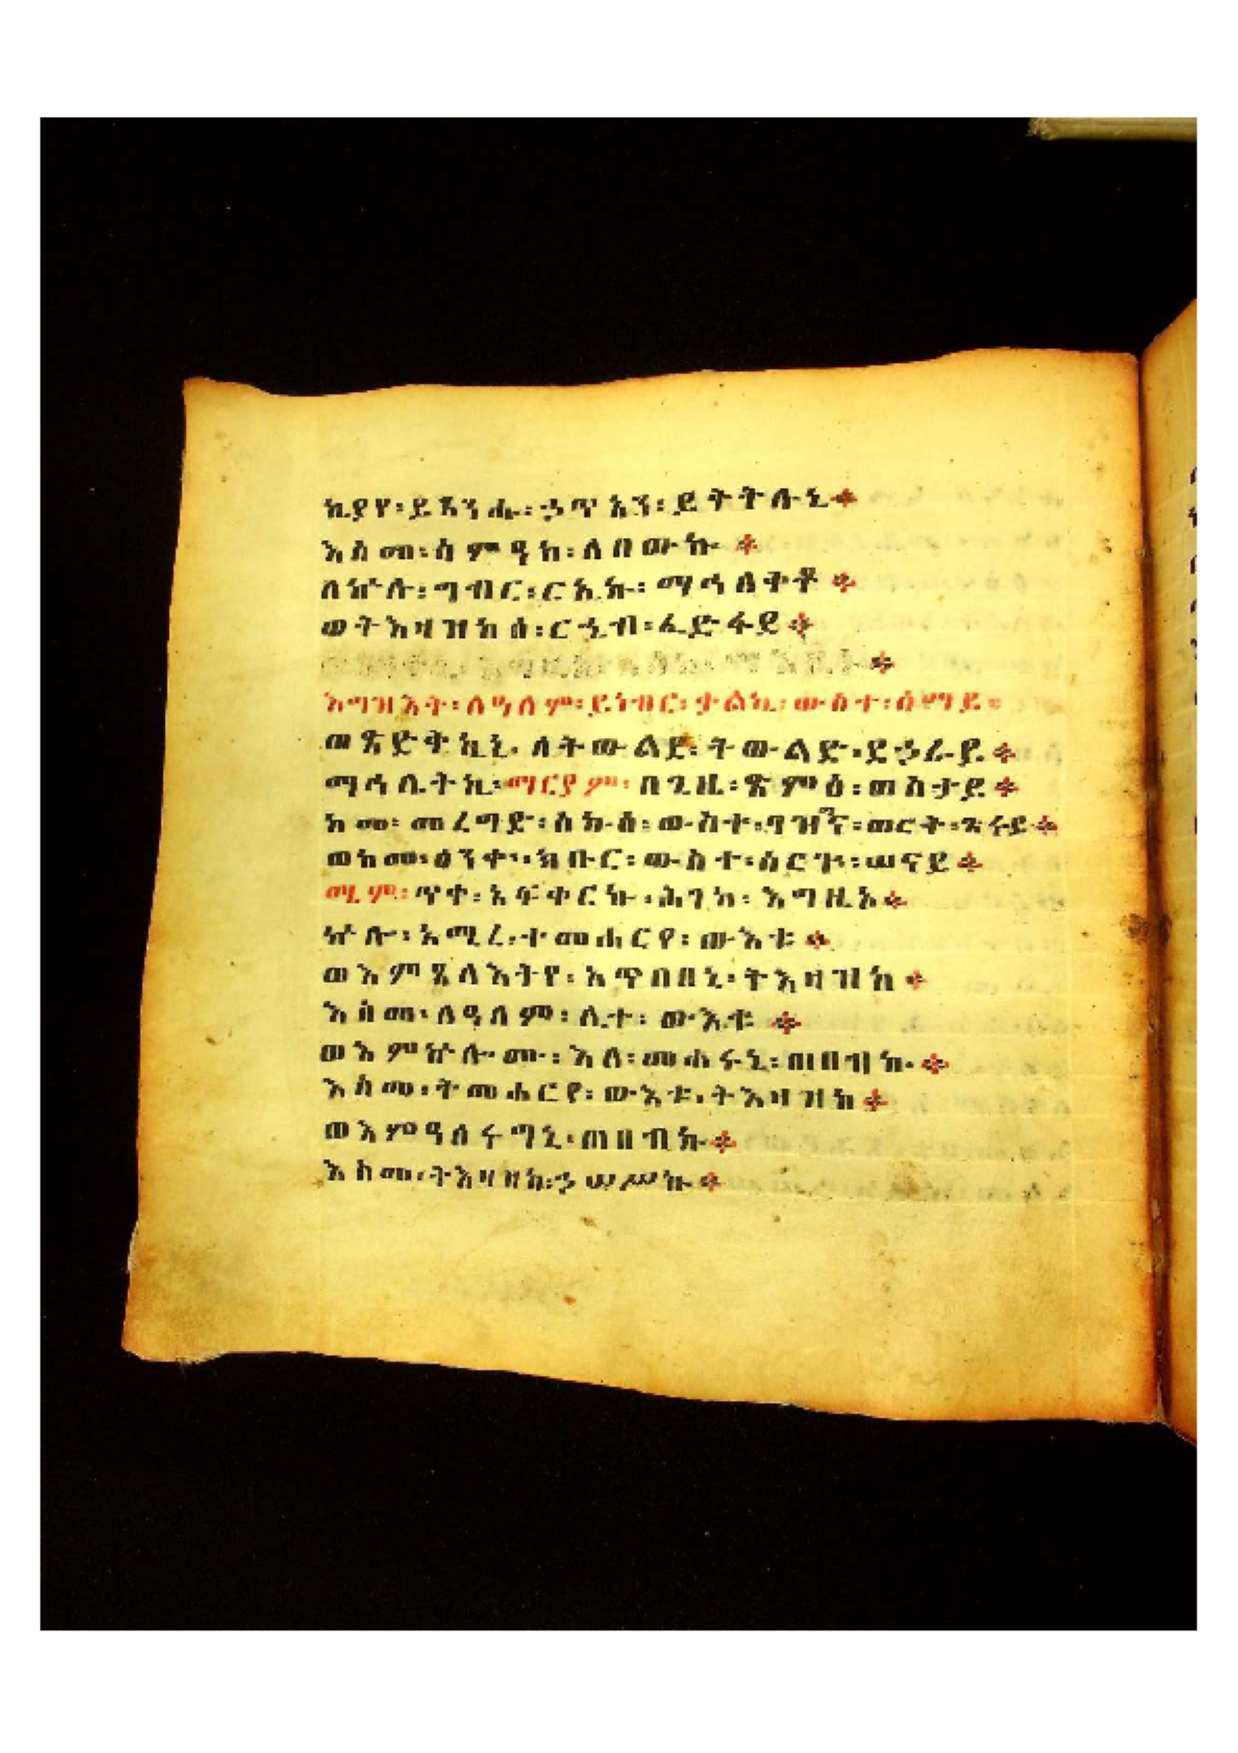 ኪያየ፡ይጸንሑ፡ኃጥአን፡ይትትሉኒ፨
እስመ፡ስምዓከ፡ለበውኩ፨
ለኵሉ፡ግብር፡ርኢኩ፡ማኅለቅቶ፨
ወትእዛዝከሰ፡ርኂብ፡ፈድፋደ፨
እግዝእት፡ለዓለም፡ይነብር፡ቃልኪ፡ውስተ፡ሰማይ።
ወጼድቅኪኒ፡ለትውልደ፡ትውልድ፡ደኃራይ፨
ማኅሌትኪ፡ማርያም፡በጊዜ፡ጽምዕ፡ወስታይ፨
ከመ፡መረግድ፡ስኩዕ፡ውስተ፡ወርቅ፡ጽሩይ፨
ወከመ፡ዕንቍ፡ክቡር፡ውስተ፡ስርጉ፡ሠናይ፨
ሚም፡ጥቀ፡አፍቀርኩ፡ሕገከ፡እግዚኦ፨
ኵሎ፡አሚረ፡ተመሐርየ፡ውእቱ፨
ወእምጸላእትየ፡አጥበበኒ፡ትእዛዝከ፨
እስመ፡ለዓለም፡ሊተ፡ውእቱ፨
ወእምኵሎሙ፡እለ፡መሐሩኒ፡ጠበብኩ፨
እስመ፡ትመሐርየ፡ውእቱ፡ትእዛዝከ፨
ወእምዓለሩግኒ፡ጠበብኩ፨
እስመ፡ትእዛዘከ፡ኃሠሥኩ፨